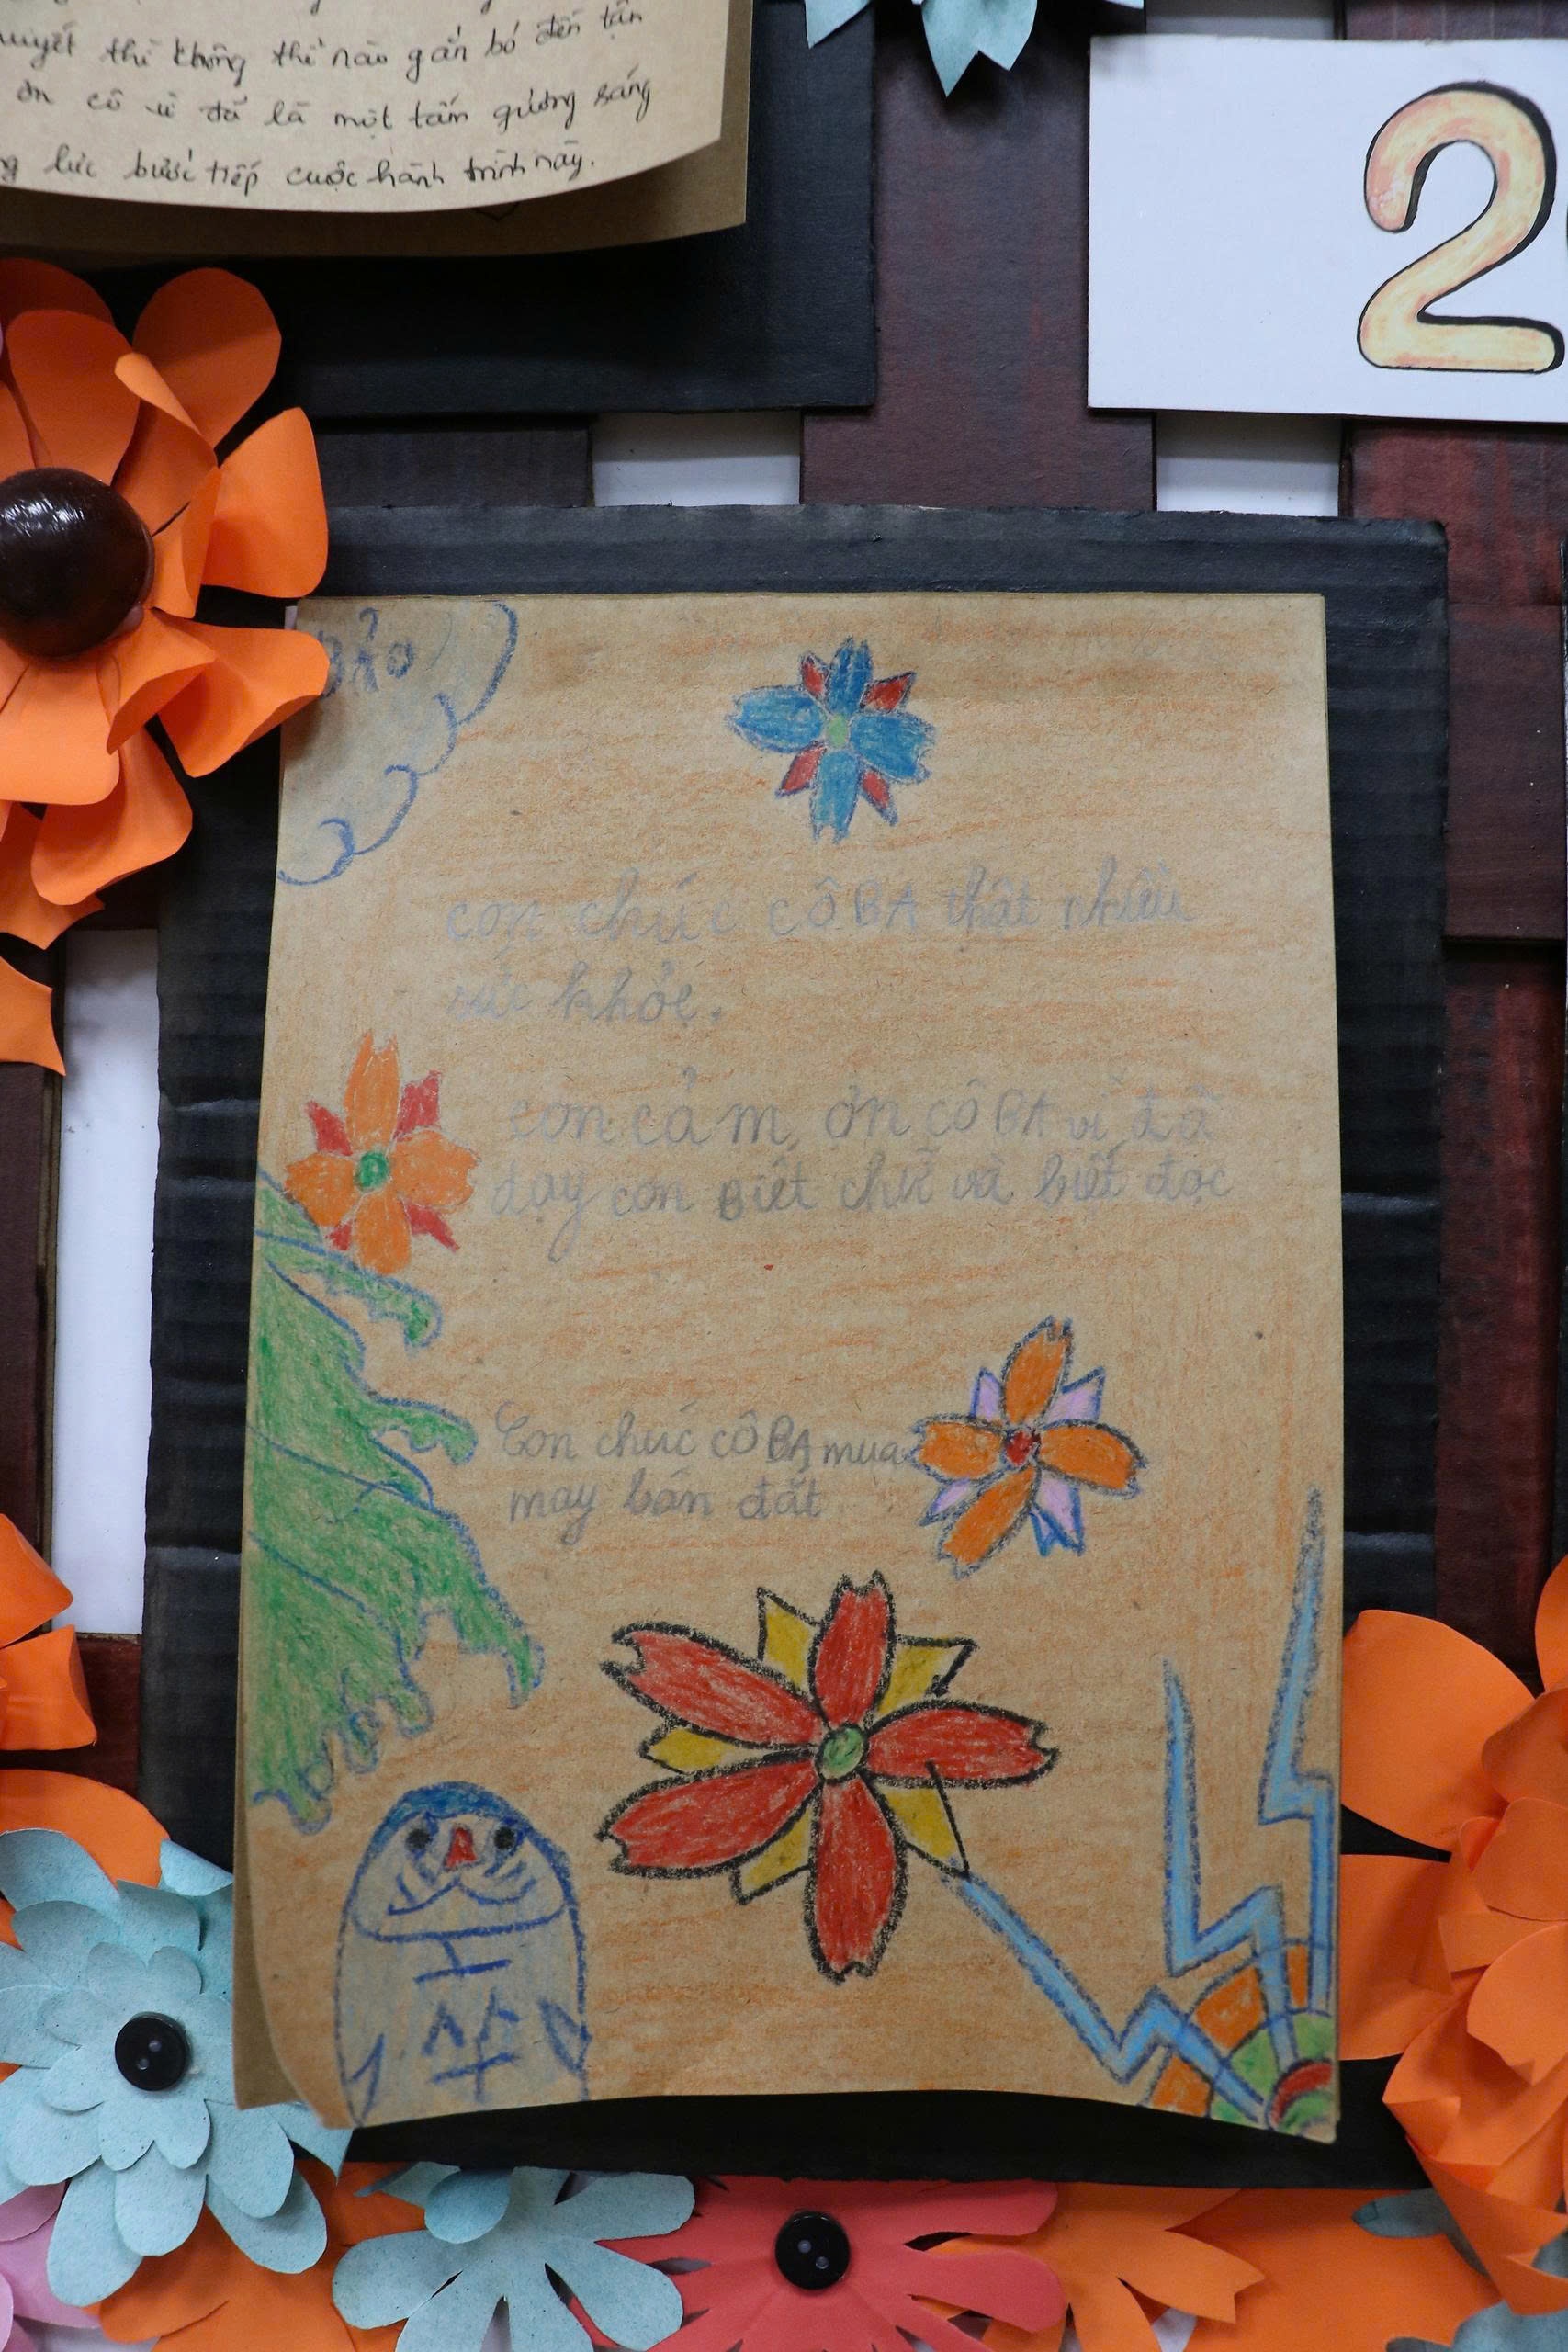 thì không thể nào gắn bó đến tận
ơn cô vì đã là một tấm gương sáng
lực bước tiếp cuộc hành trình này.
2
BẢO
con chúc cô BA thật nhiều
sức khỏe.
con cảm ơn cô BA vì đã
dạy con Biết chữ và biết đọc
Con chúc cô BA mua
may bán đắt